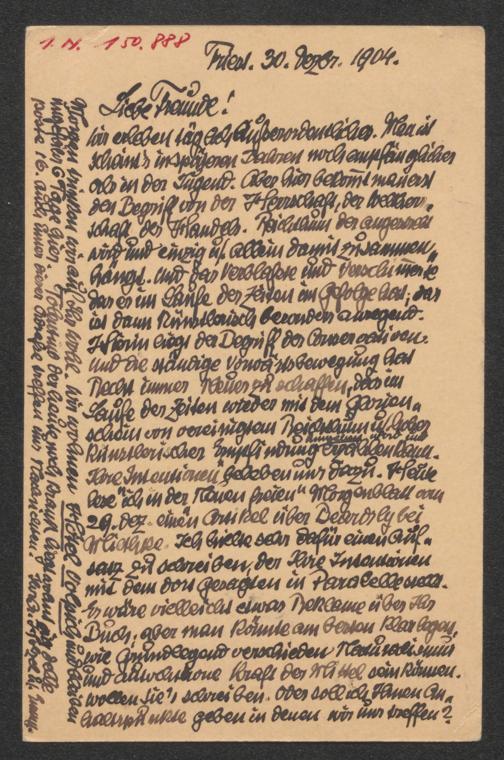 I. N. 150.888
Triest. 30. Dezbr. 1904.
Liebe Freunde!
Wir erleben täglich Außerordentliches. Man ist
scheint's in späteren Jahren noch empfänglicher
als in der Jugend. Aber hier bekommt man erst
den Begriff von der Herrschaft, der Weltherr-
schaft des Handels. Reichtum der angewandt
wird und einzig u. allein damit zusammen-
hängt. Und das Verblaßte und Verschlimmerte
das er im Laufe der Zeiten im Gefolge hat; das
ist dann künstlerisch besonders anregend.
Hierin liegt der Begriff des Conservativen.
Und die ständige Vorwärtsbewegung hat
Recht immer Neues zu schaffen, das im
Laufe der Zeiten wieder mit dem Glorien-
schein von vereinigtem Reichtum u. hoher
künstlerischer Empfindung
Ihre Intentionen" geleben uns dazu. Heute
lese ich in der "Neuen Freien" Morgenblatt vom
29. Dez. einen Artikel über Beardsly bei
Miethke. Ich hielte sehr dafür einen Auf-
satz zu schreiben, der Ihre Intentionen
mit dem dort gesagten in Parallele stellt.
Es wäre vielleicht etwas Reklame über Ihr
Buch, aber man könnte am besten klar legen,
wie grundlegend verschieden Naturalismus
und Kraft der Mittel sein können.
Wollen Sie's schreiben. Oder soll ich Ihnen An-
haltspunkte geben in denen wir uns treffen?
Morgen ziehen wir auf die Woche. Wir wohnen Hotel Volpich und bleiben
noch 6 Tage hier.
poste re. auch unter dieser Adresse treffen uns Nachrichten. Herzl. Grüße